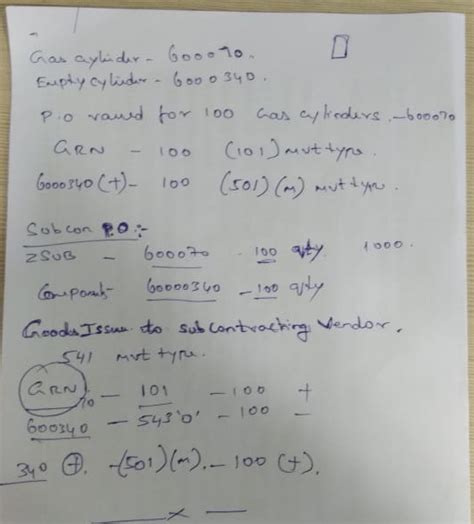 Gas cylinder - 600070.
Empty cylinder - 6000340.
P.o raised for 100 Gas cylinders. - 600070
GRN - 100 (101) mvt type.
6000340 (+) - 100 (501) (M) mvt type.
Subcon PO:-
ZSUB - 600070 - 100 qty. 1000.
Component - 60000340 - 100 qty
Goods Issue to subcontracting Vendor.
541 mvt type.
GRN - 101 - 100 +
70
600340 - 543 'O' - 100 -
340 (+). - (501) (M). - 100 (+).
x